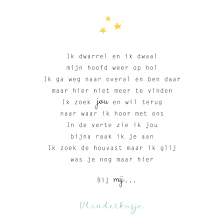 Ik dwarrel en ik dwaal
mijn hoofd weer op hol
Ik ga weg naar overal en ben daar
maar hier niet meer te vinden
Ik zoek jou en wil terug
naar waar ik hoor met ons
In de verte zie ik jou
bijna raak ik je aan
Ik zoek de houvast maar ik glij
was je nog maar hier
Bij mij...
Vlinderkusje